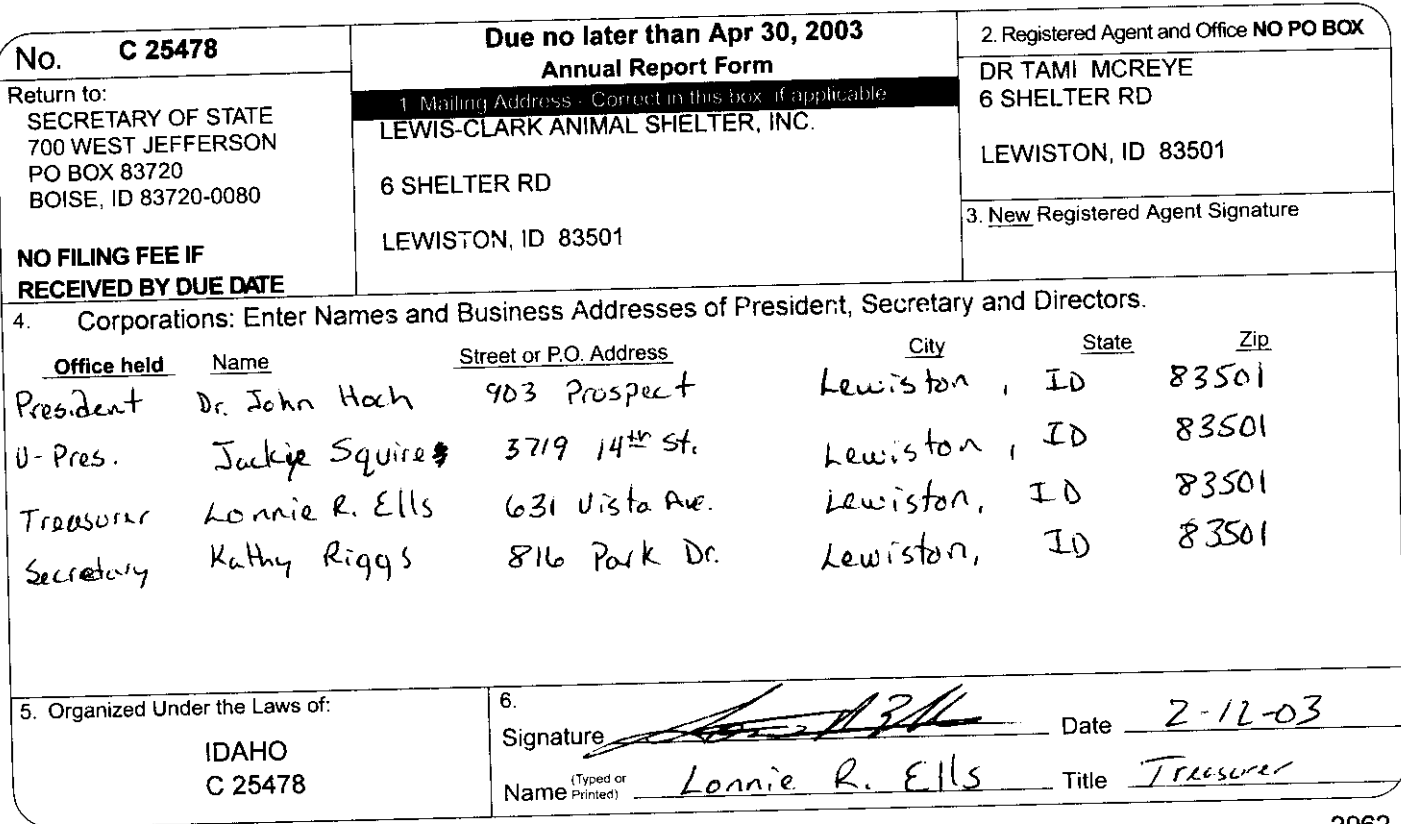 No. C 25478
Return to:
SECRETARY OF STATE
700 WEST JEFFERSON
PO BOX 83720
BOISE, ID 83720-0080
NO FILING FEE IF
RECEIVED BY DUE DATE
Due no later than Apr 30, 2003
Annual Report Form
1. Mailing Address - Correct in this box, if applicable
LEWIS-CLARK ANIMAL SHELTER, INC.
6 SHELTER RD
LEWISTON, ID 83501
2. Registered Agent and Office NO PO BOX
DR TAMI MCREYE
6 SHELTER RD
LEWISTON, ID 83501
3. New Registered Agent Signature
4. Corporations: Enter Names and Business Addresses of President, Secretary and Directors.
Office held Name Street or P.O. Address City State Zip
President Dr. John Hoch 903 Prospect Lewiston, ID 83501
V-Pres. Jackie Squires 3719 14th St. Lewiston, ID 83501
Treasurer Lonnie R. Ells 631 Vista Ave. Lewiston, ID 83501
Secretary Kathy Riggs 816 Park Dr. Lewiston, ID 83501
5. Organized Under the Laws of:
IDAHO
C 25478
6.
Signature Date 2-12-03
Name (Typed or Printed) Lonnie R. Ells Title Treasurer